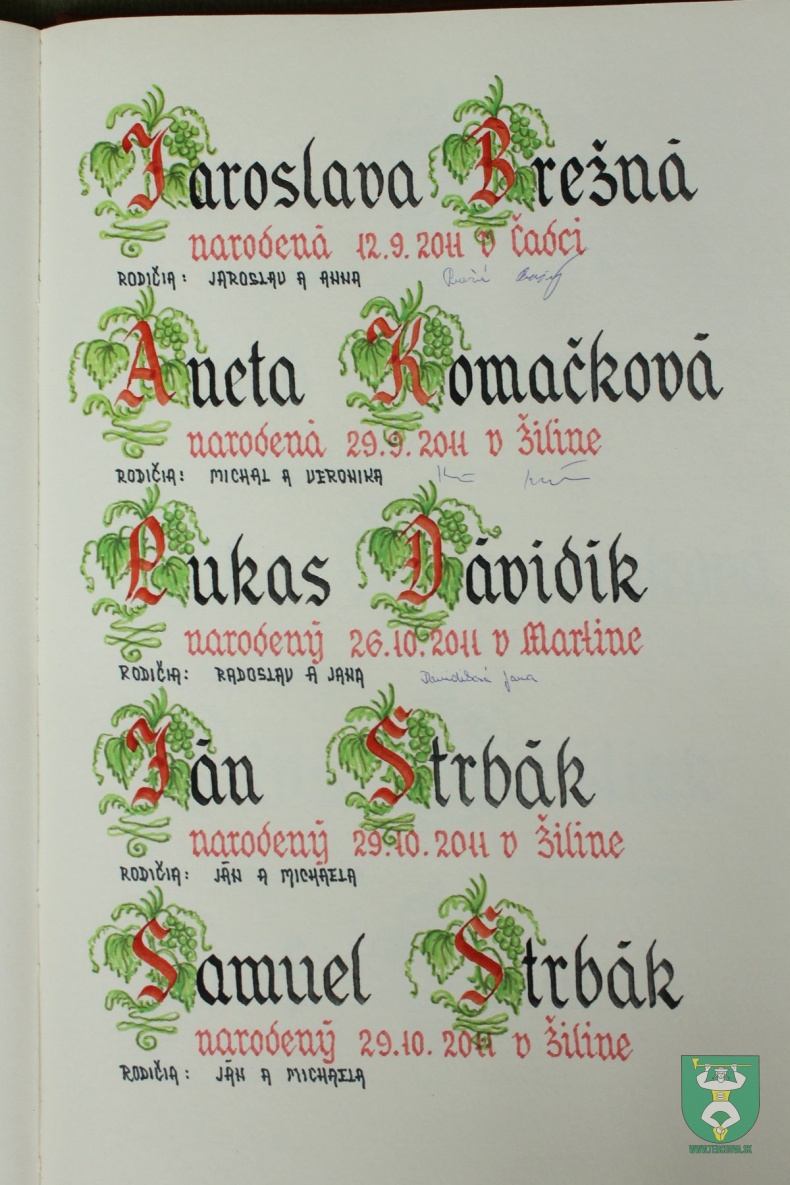 Jaroslava Brežná
narodená 12.9.2011 v Čadci
RODIČIA: JAROSLAV A ANNA
Aneta Komačková
narodená 29.9.2011 v Žiline
RODIČIA: MICHAL A VERONIKA
Lukas Dávidik
narodený 26.10.2011 v Martine
RODIČIA: RADOSLAV A JANA Davidiková Jana
Ján Štrbák
narodený 29.10.2011 v Žiline
RODIČIA: JÁN A MICHAELA
Samuel Štrbák
narodený 29.10.2011 v Žiline
RODIČIA: JÁN A MICHAELA
WWW.TERCHOVA.SK